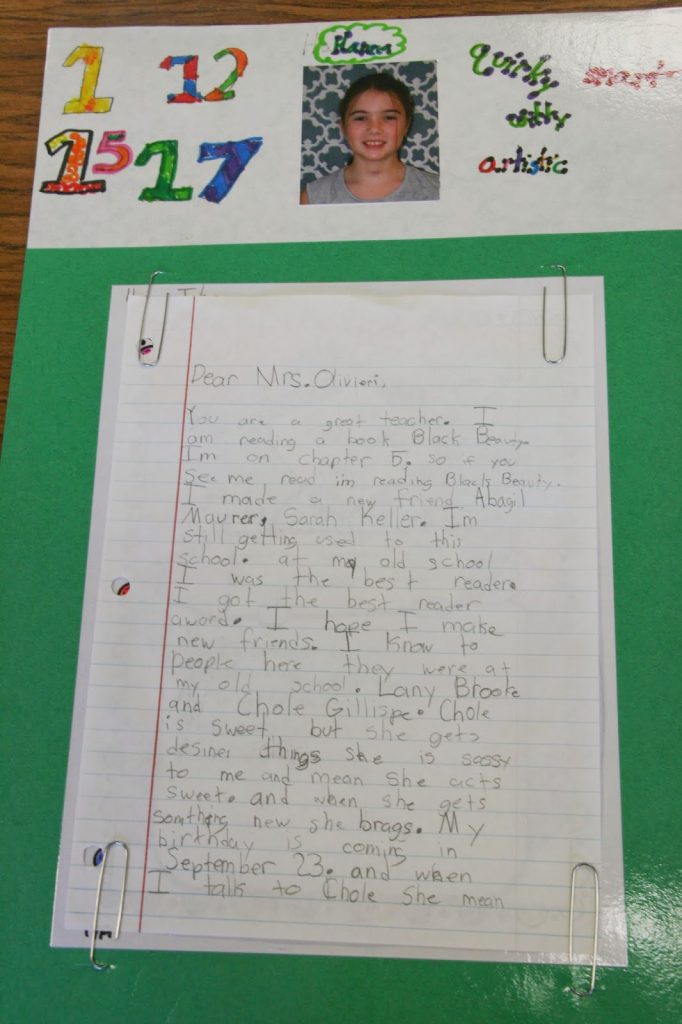 1
12
15
17
quirky
witty
artistic
Dear Mrs. Olivieri,
You are a great teacher. I
am reading a book Black Beauty.
Im on chapter 5. so if you
see me read im reading Black Beauty.
I made a new friend Abagil
Maurer, Sarah Keller. Im
still getting used to this
school. at my old school
I was the best reader.
I got the best reader
award. I hope I make
new friends. I know to
people here they were at
my old school. Lany Brooke
and Chole Gillispe. Chole
is sweet but she gets
desiner things she is sassy
to me and mean she acts
sweet. and when she gets
somthing new she brags. My
birthday is coming in
September 23. and when
I talk to Chole she mean